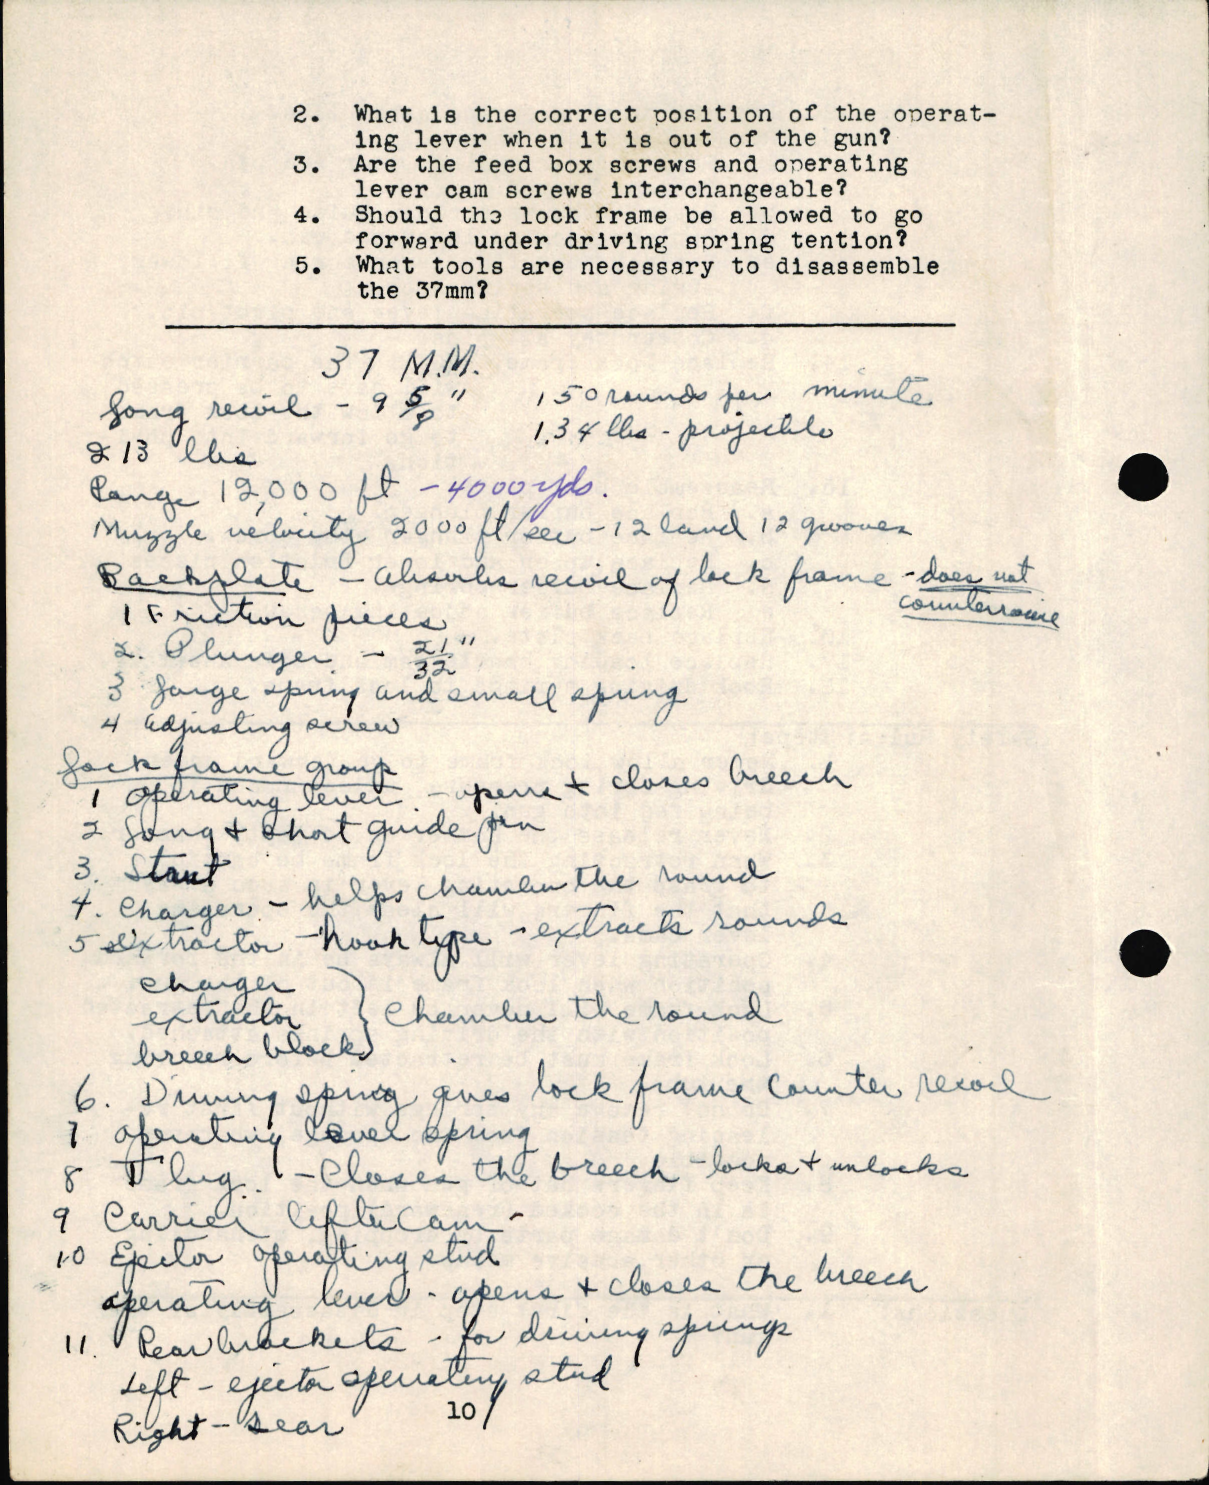 2. What is the correct position of the operat-
ing lever when it is out of the gun?
3. Are the feed box screws and operating
lever cam screws interchangeable?
4. Should the lock frame be allowed to go
forward under driving spring tention?
5. What tools are necessary to disassemble
the 37mm?
37 M.M.
Long recoil - 9 5/8" 150 rounds per minute
213 lbs 1.34 lbs - projectile
Range 12,000 ft - 4000 yds.
Muzzle velocity 2000 ft/sec - 12 land 12 grooves
Backplate - absorbs recoil of lock frame - does not
counterrecoil
1 Friction pieces
2. Plunger - 21/32"
3 Large spring and small spring
4 adjusting screw
Lock frame group
1 operating lever - opens + closes breech
2 Long + short guide pin
3. Strut
4. Charger - helps chamber the round
5 extractor - hook type - extracts rounds
charger
extractor } chamber the round
breech block
6. Driving spring gives lock frame counter recoil
7 operating lever spring
8 T lug - Closes the breech - locks + unlocks
9 Carrier lifter Cam -
10 Ejector operating stud
operating lever - opens + closes the breech
11. Rear brackets - for driving springs
Left - ejector operating stud
Right - sear
10